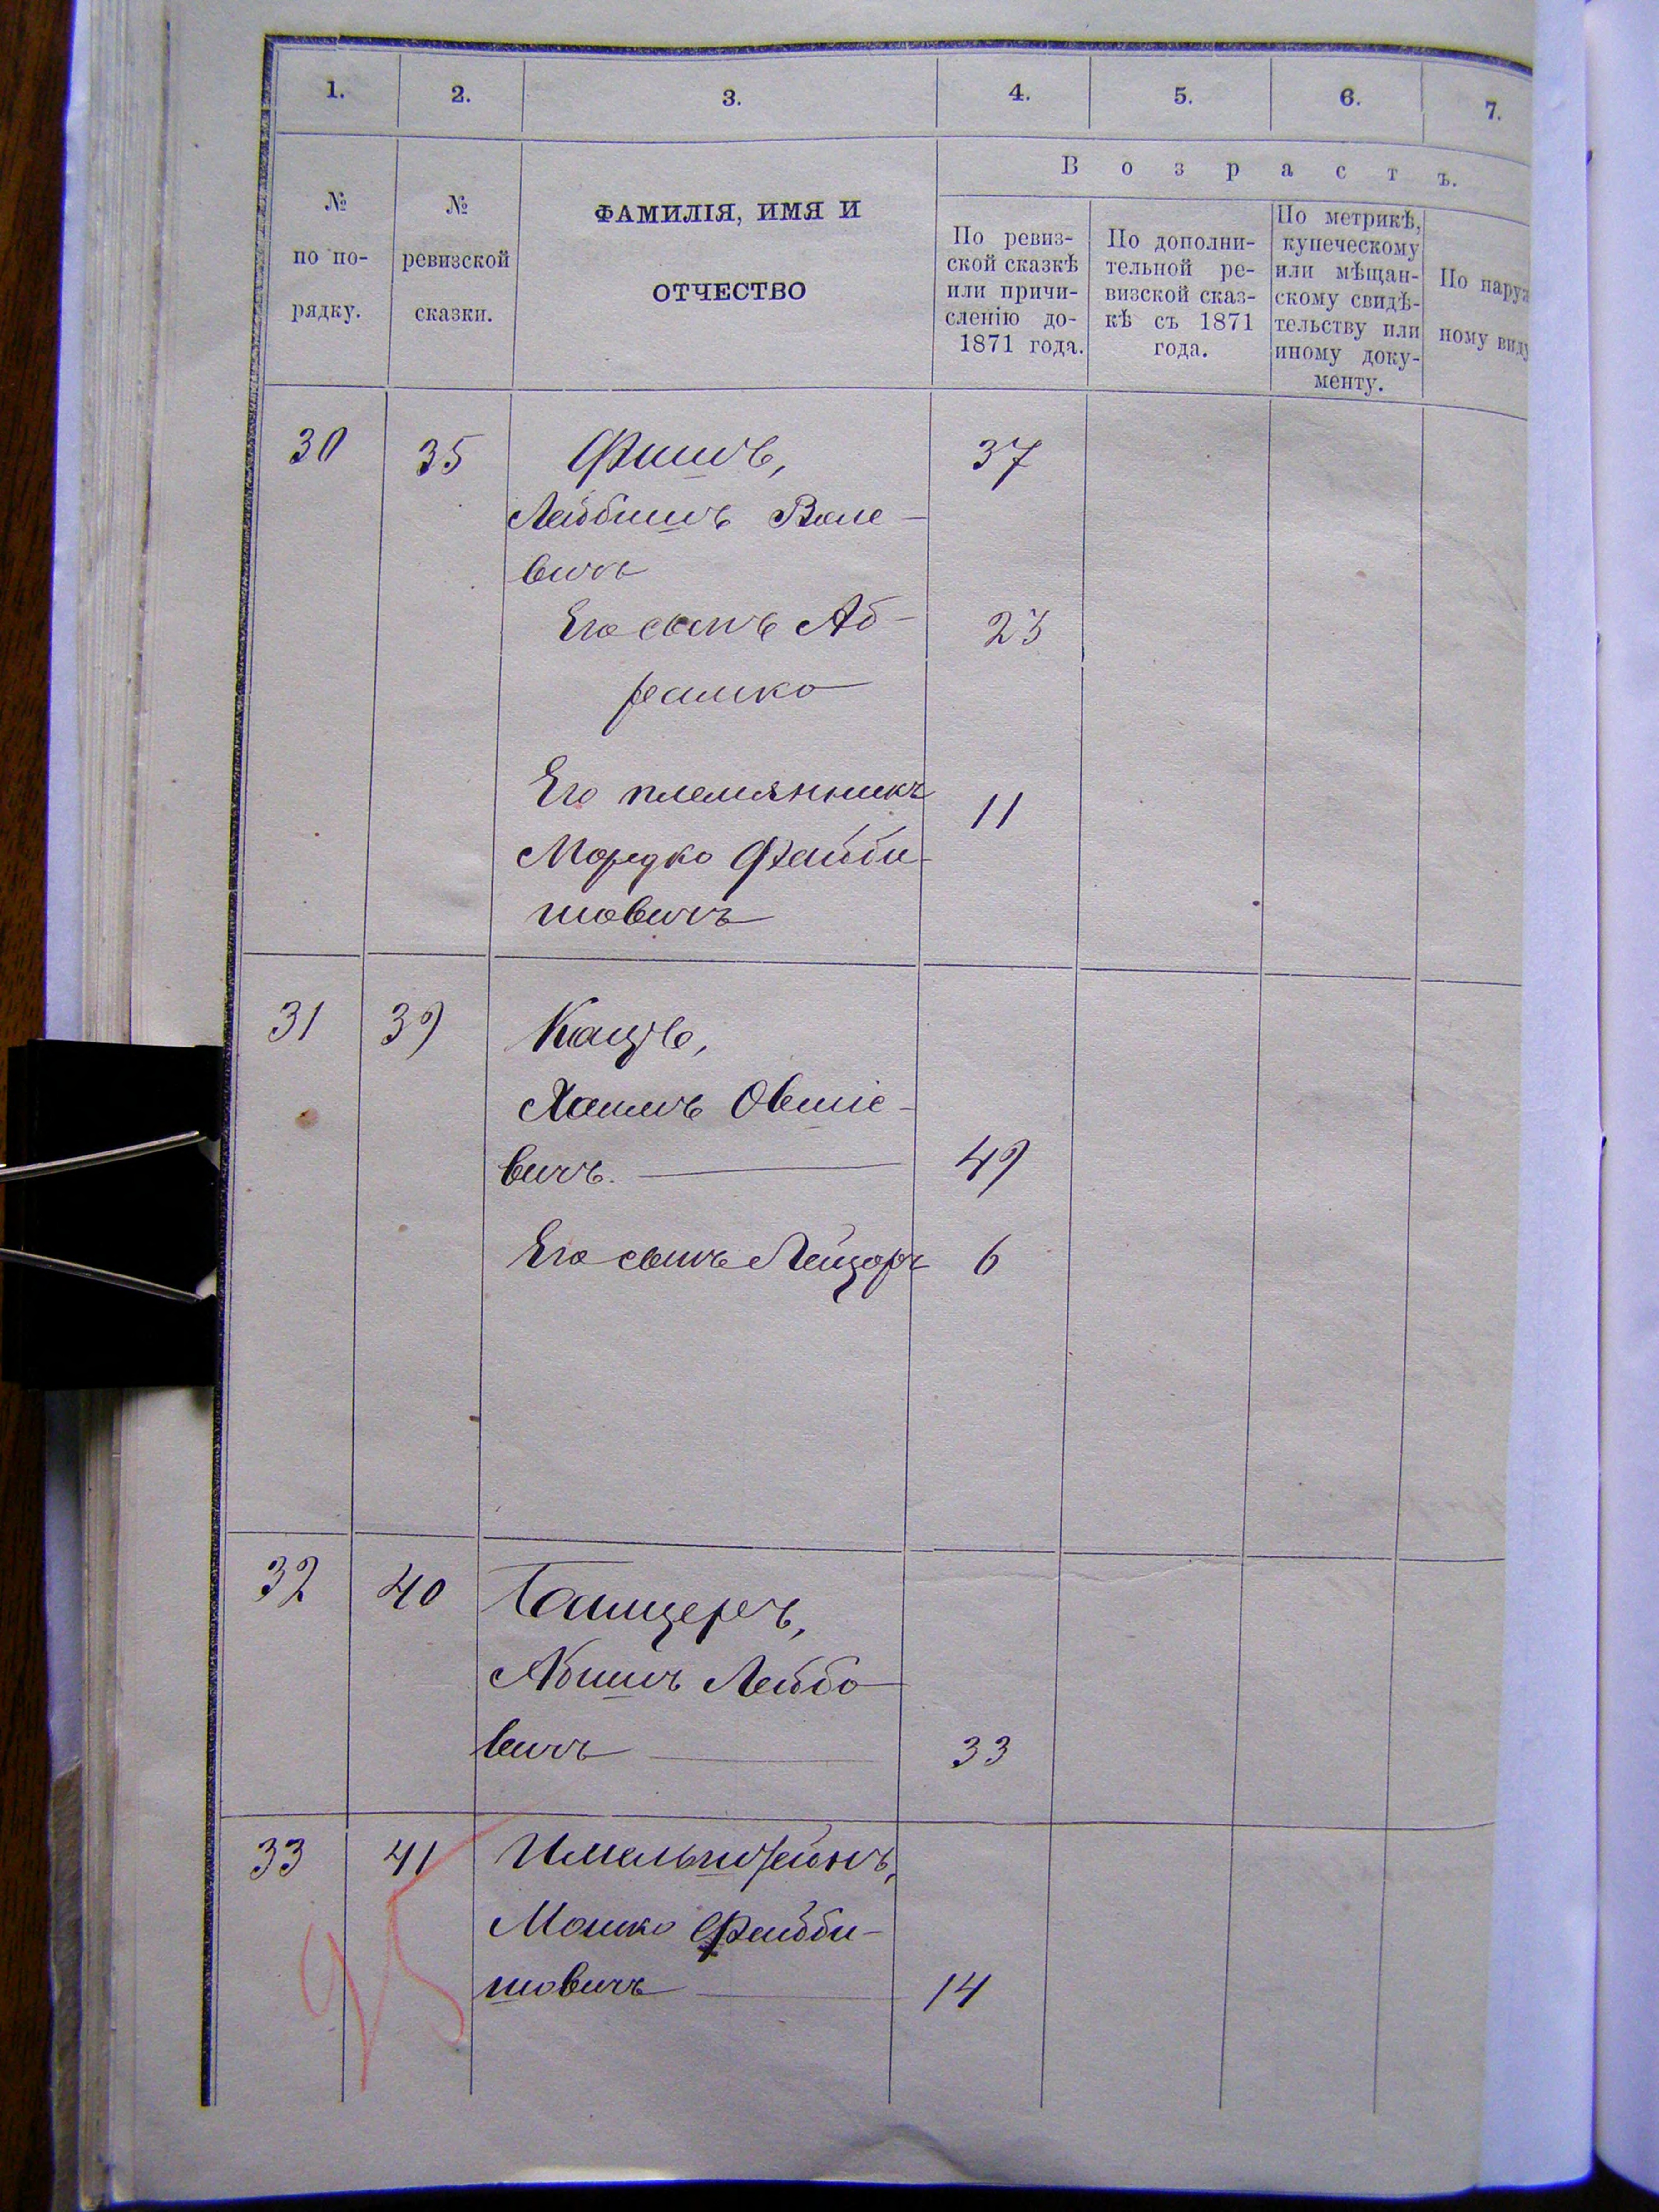 1. 2. 3. 4. 5. 6. 7.
Возрастъ.
№ по по- рядку.
№ ревизской сказки.
ФАМИЛІЯ, ИМЯ И
ОТЧЕСТВО
По ревиз-
ской сказкѣ
или причи-
сленію до-
1871 года.
По дополни-
тельной ре-
визской сказ-
кѣ съ 1871
года.
По метрикѣ,
купеческому
или мѣщан-
скому свидѣ-
тельству или
иному доку-
менту.
По наруж
ному виду
30 35 Фишъ, 37
Лейбишъ Воле-
вичъ
Его сынъ Аб- 23
рамко
Его племянникъ 11
Мордко Файби-
шовичъ
31 39 Кацъ,
Хаимъ Овшіе-
вичъ. 49
Его сынъ Лейзоръ 6
32 40 Танцеръ,
Абишъ Лейбо
вичъ 33
33 41 Имельштейнъ,
Мошко Файби-
шовичъ 14
95